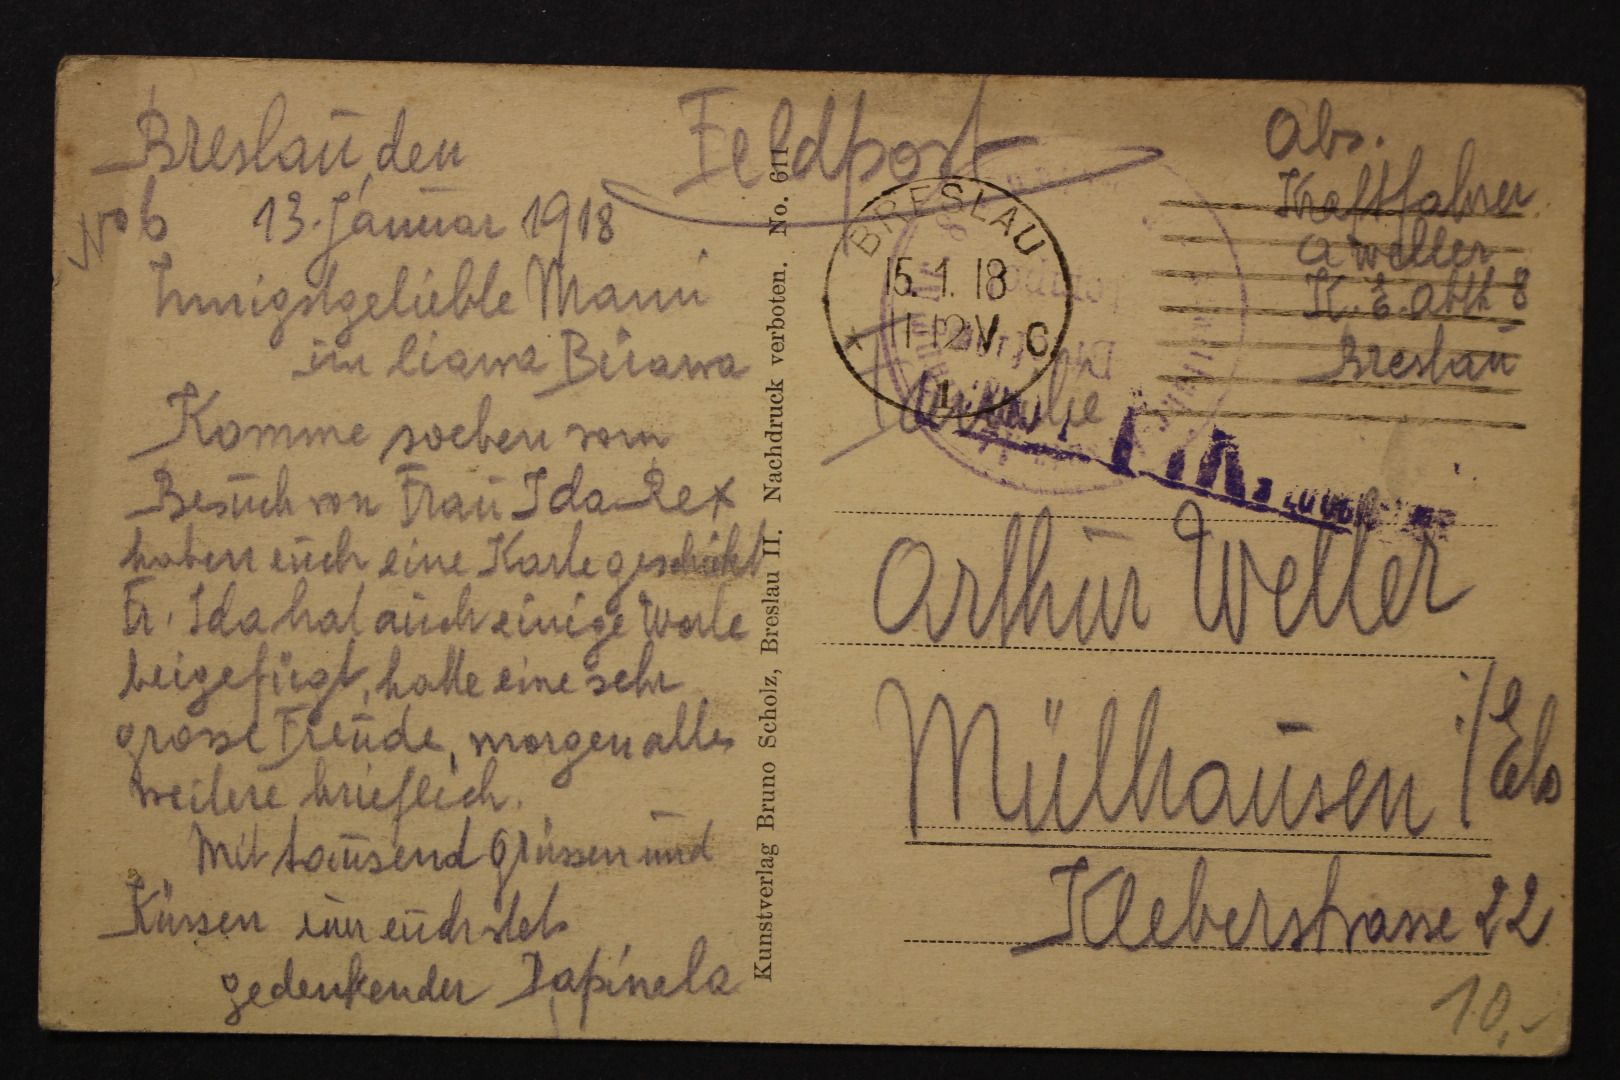 Breslau, den
No 6 13. Januar 1918
Innigstgeliebte Mami
Komme soeben vom
Besuch von Frau Ida Rex
haben euch eine Karte geschickt
Fr. Ida hat auch einige Worte
beigefügt, hatte eine sehr
grosse Freude, morgen alles
weitere brieflich.
Mit tausend Grüssen und
Küssen euer euch stets
gedenkender Papinela
Kunstverlag Bruno Scholz, Breslau II. Nachdruck verboten. No. 611
Feldpost
BRESLAU
15. 1. 18
11-12 V.
1
Abs.
Kraftfahrer
A Weller
K. E. Abth 8
Breslau
Familie
Arthur Weller
Mülhausen i/Els
Kleberstrasse 22
10,-